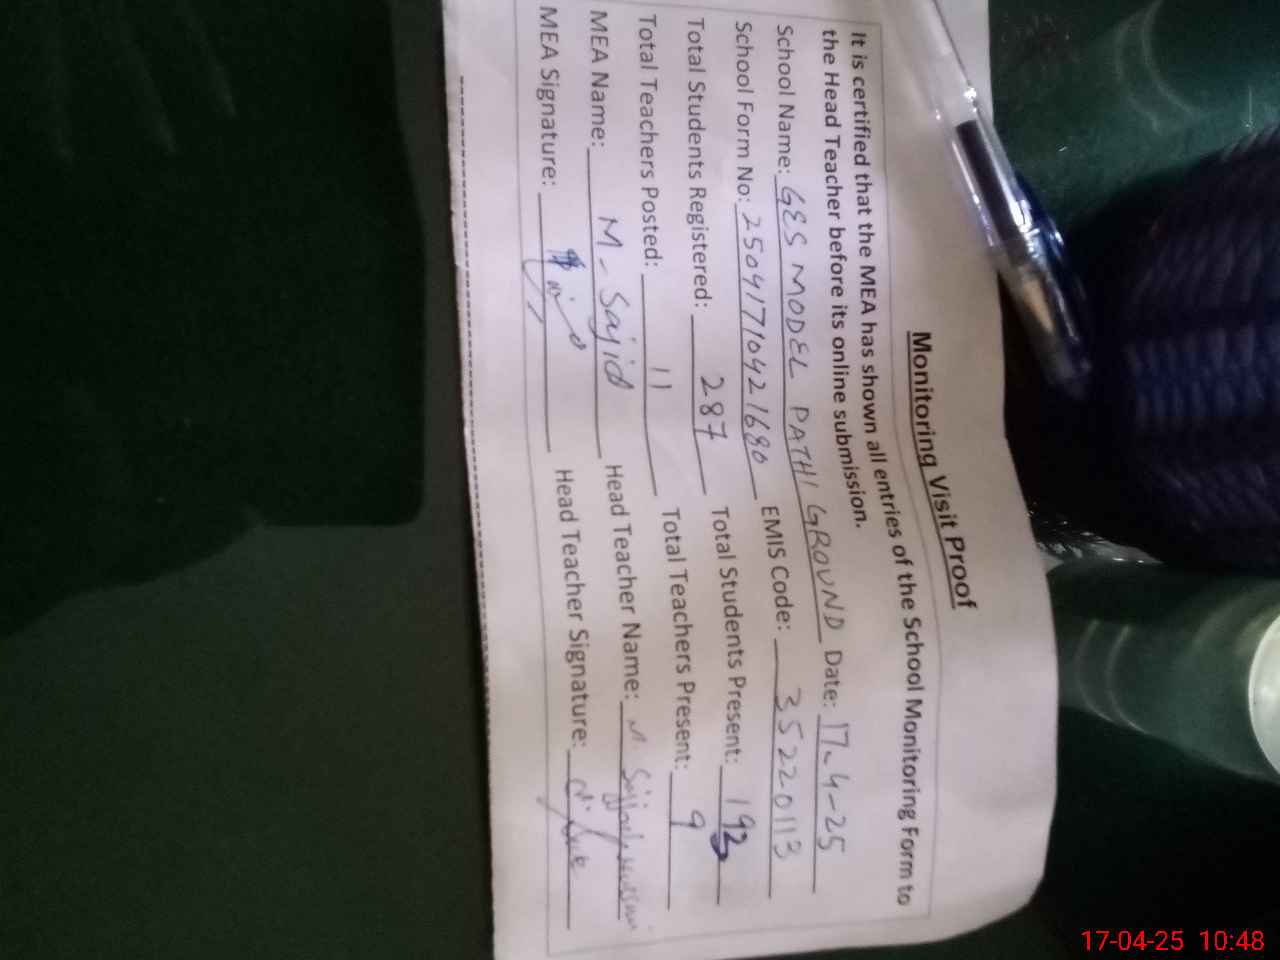 Monitoring Visit Proof
It is certified that the MEA has shown all entries of the School Monitoring Form to
the Head Teacher before its online submission.
School Name: GES MODEL PATHI GROUND Date: 17-4-25
School Form No: 25041710421680 EMIS Code: 35220113
Total Students Registered: 287 Total Students Present: 192
Total Teachers Posted: 11 Total Teachers Present: 9
MEA Name: M. Sajid Head Teacher Name: M
MEA Signature: Head Teacher Signature:
17-04-25 10:48